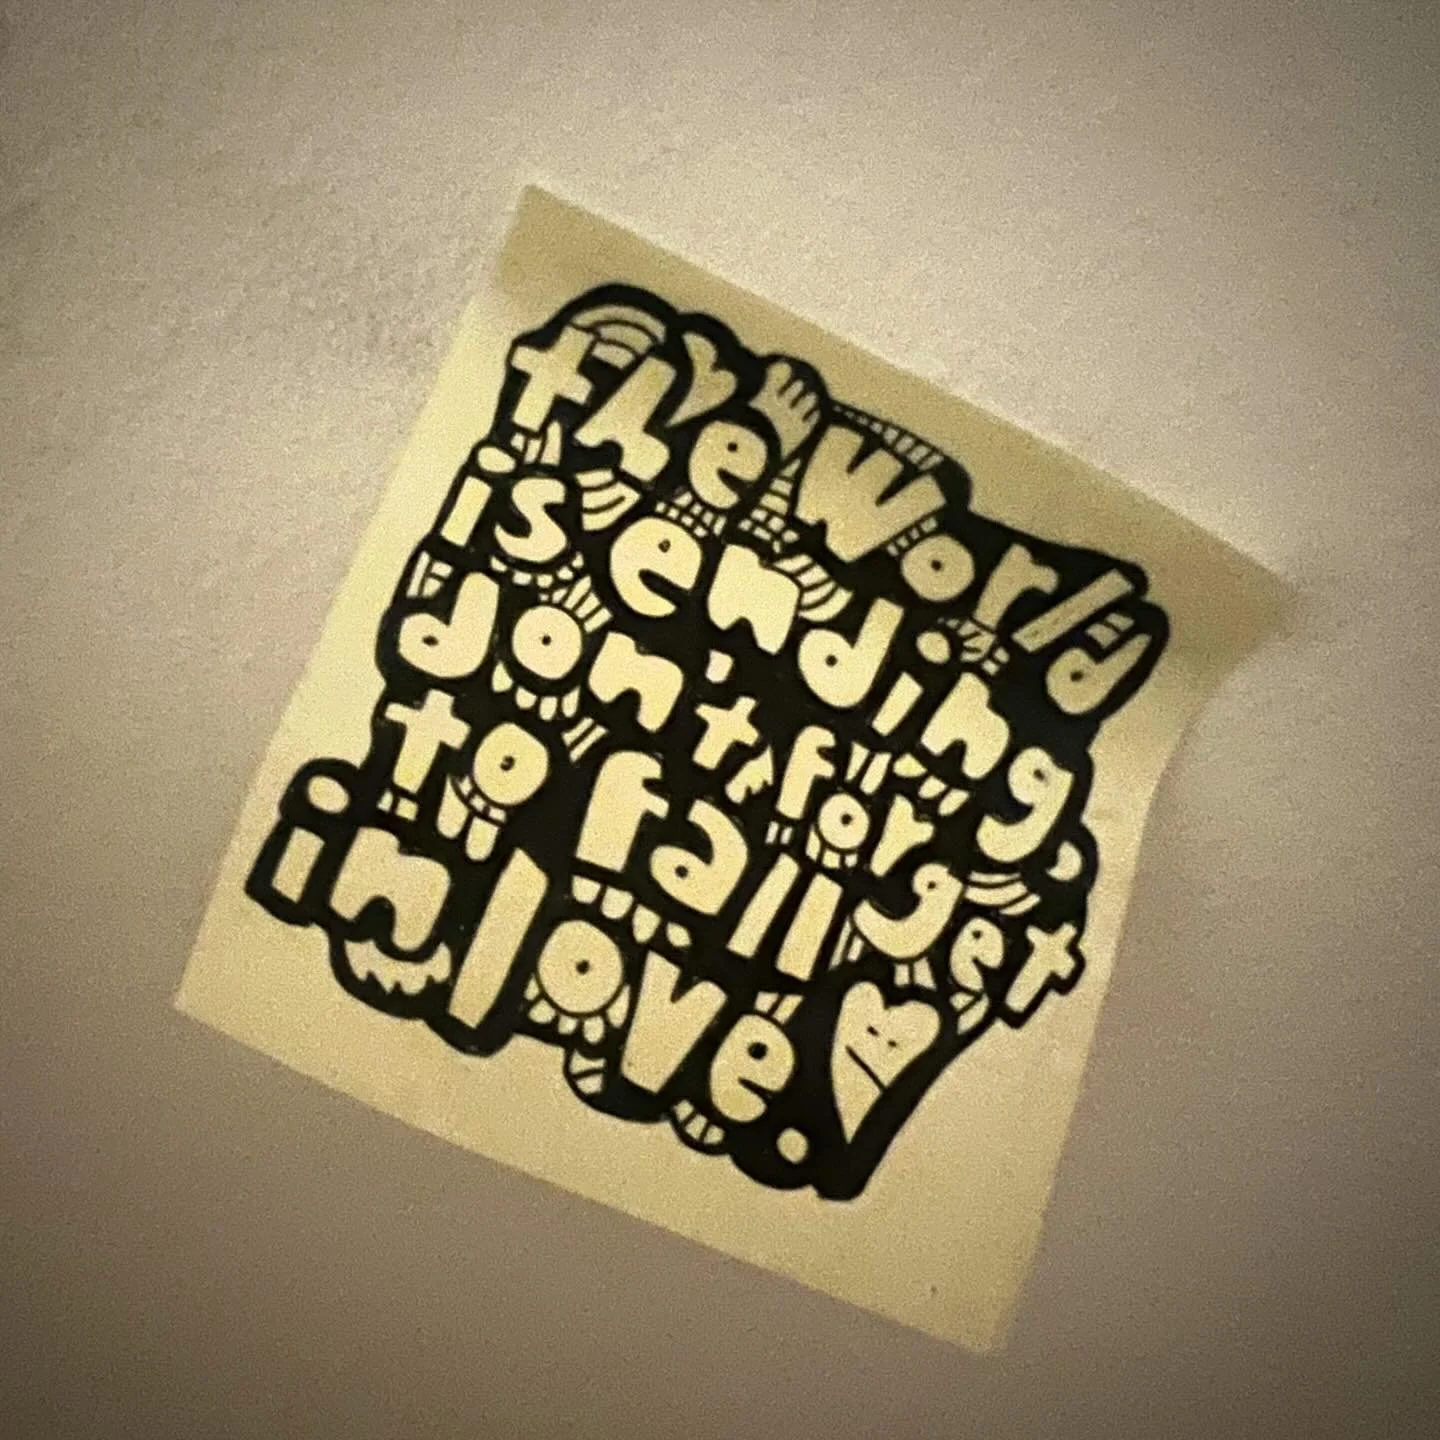 the world
is ending,
don't forget
to fall
in love.